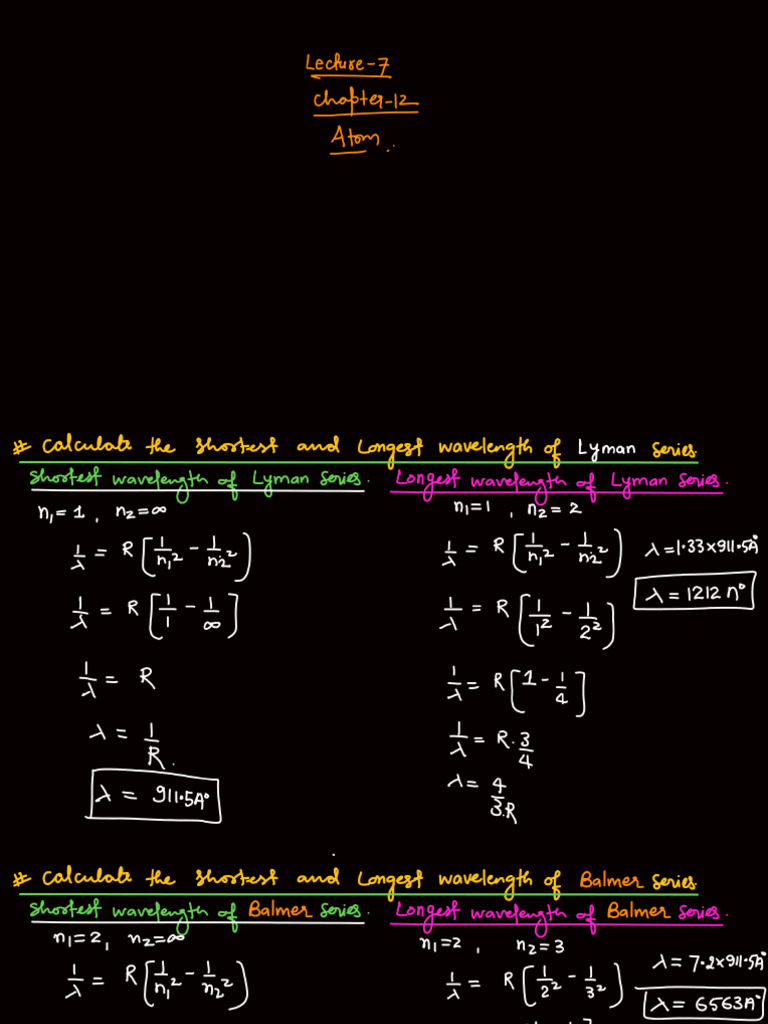 Lecture-7
Chapter-12
Atom
# Calculate the shortest and Longest wavelength of Lyman Series.
Shortest wavelength of Lyman Series.
n₁=1, n₂=∞
1/λ = R[1/n₁² - 1/n₂²]
1/λ = R[1/1 - 1/∞]
1/λ = R
λ = 1/R.
λ = 911.5A°
Longest wavelength of Lyman Series.
n₁=1, n₂=2
1/λ = R[1/n₁² - 1/n₂²]
1/λ = R[1/1² - 1/2²]
1/λ = R[1 - 1/4]
1/λ = R.3/4
λ = 4/3.R
λ=1.33×911.5A°
λ=1212 n°
# Calculate the shortest and Longest wavelength of Balmer Series.
Shortest wavelength of Balmer Series.
n₁=2, n₂=∞
1/λ = R[1/n₁² - 1/n₂²]
Longest wavelength of Balmer Series.
n₁=2, n₂=3
1/λ = R[1/2² - 1/3²]
λ=7.2×911.5A°
λ = 6563A°